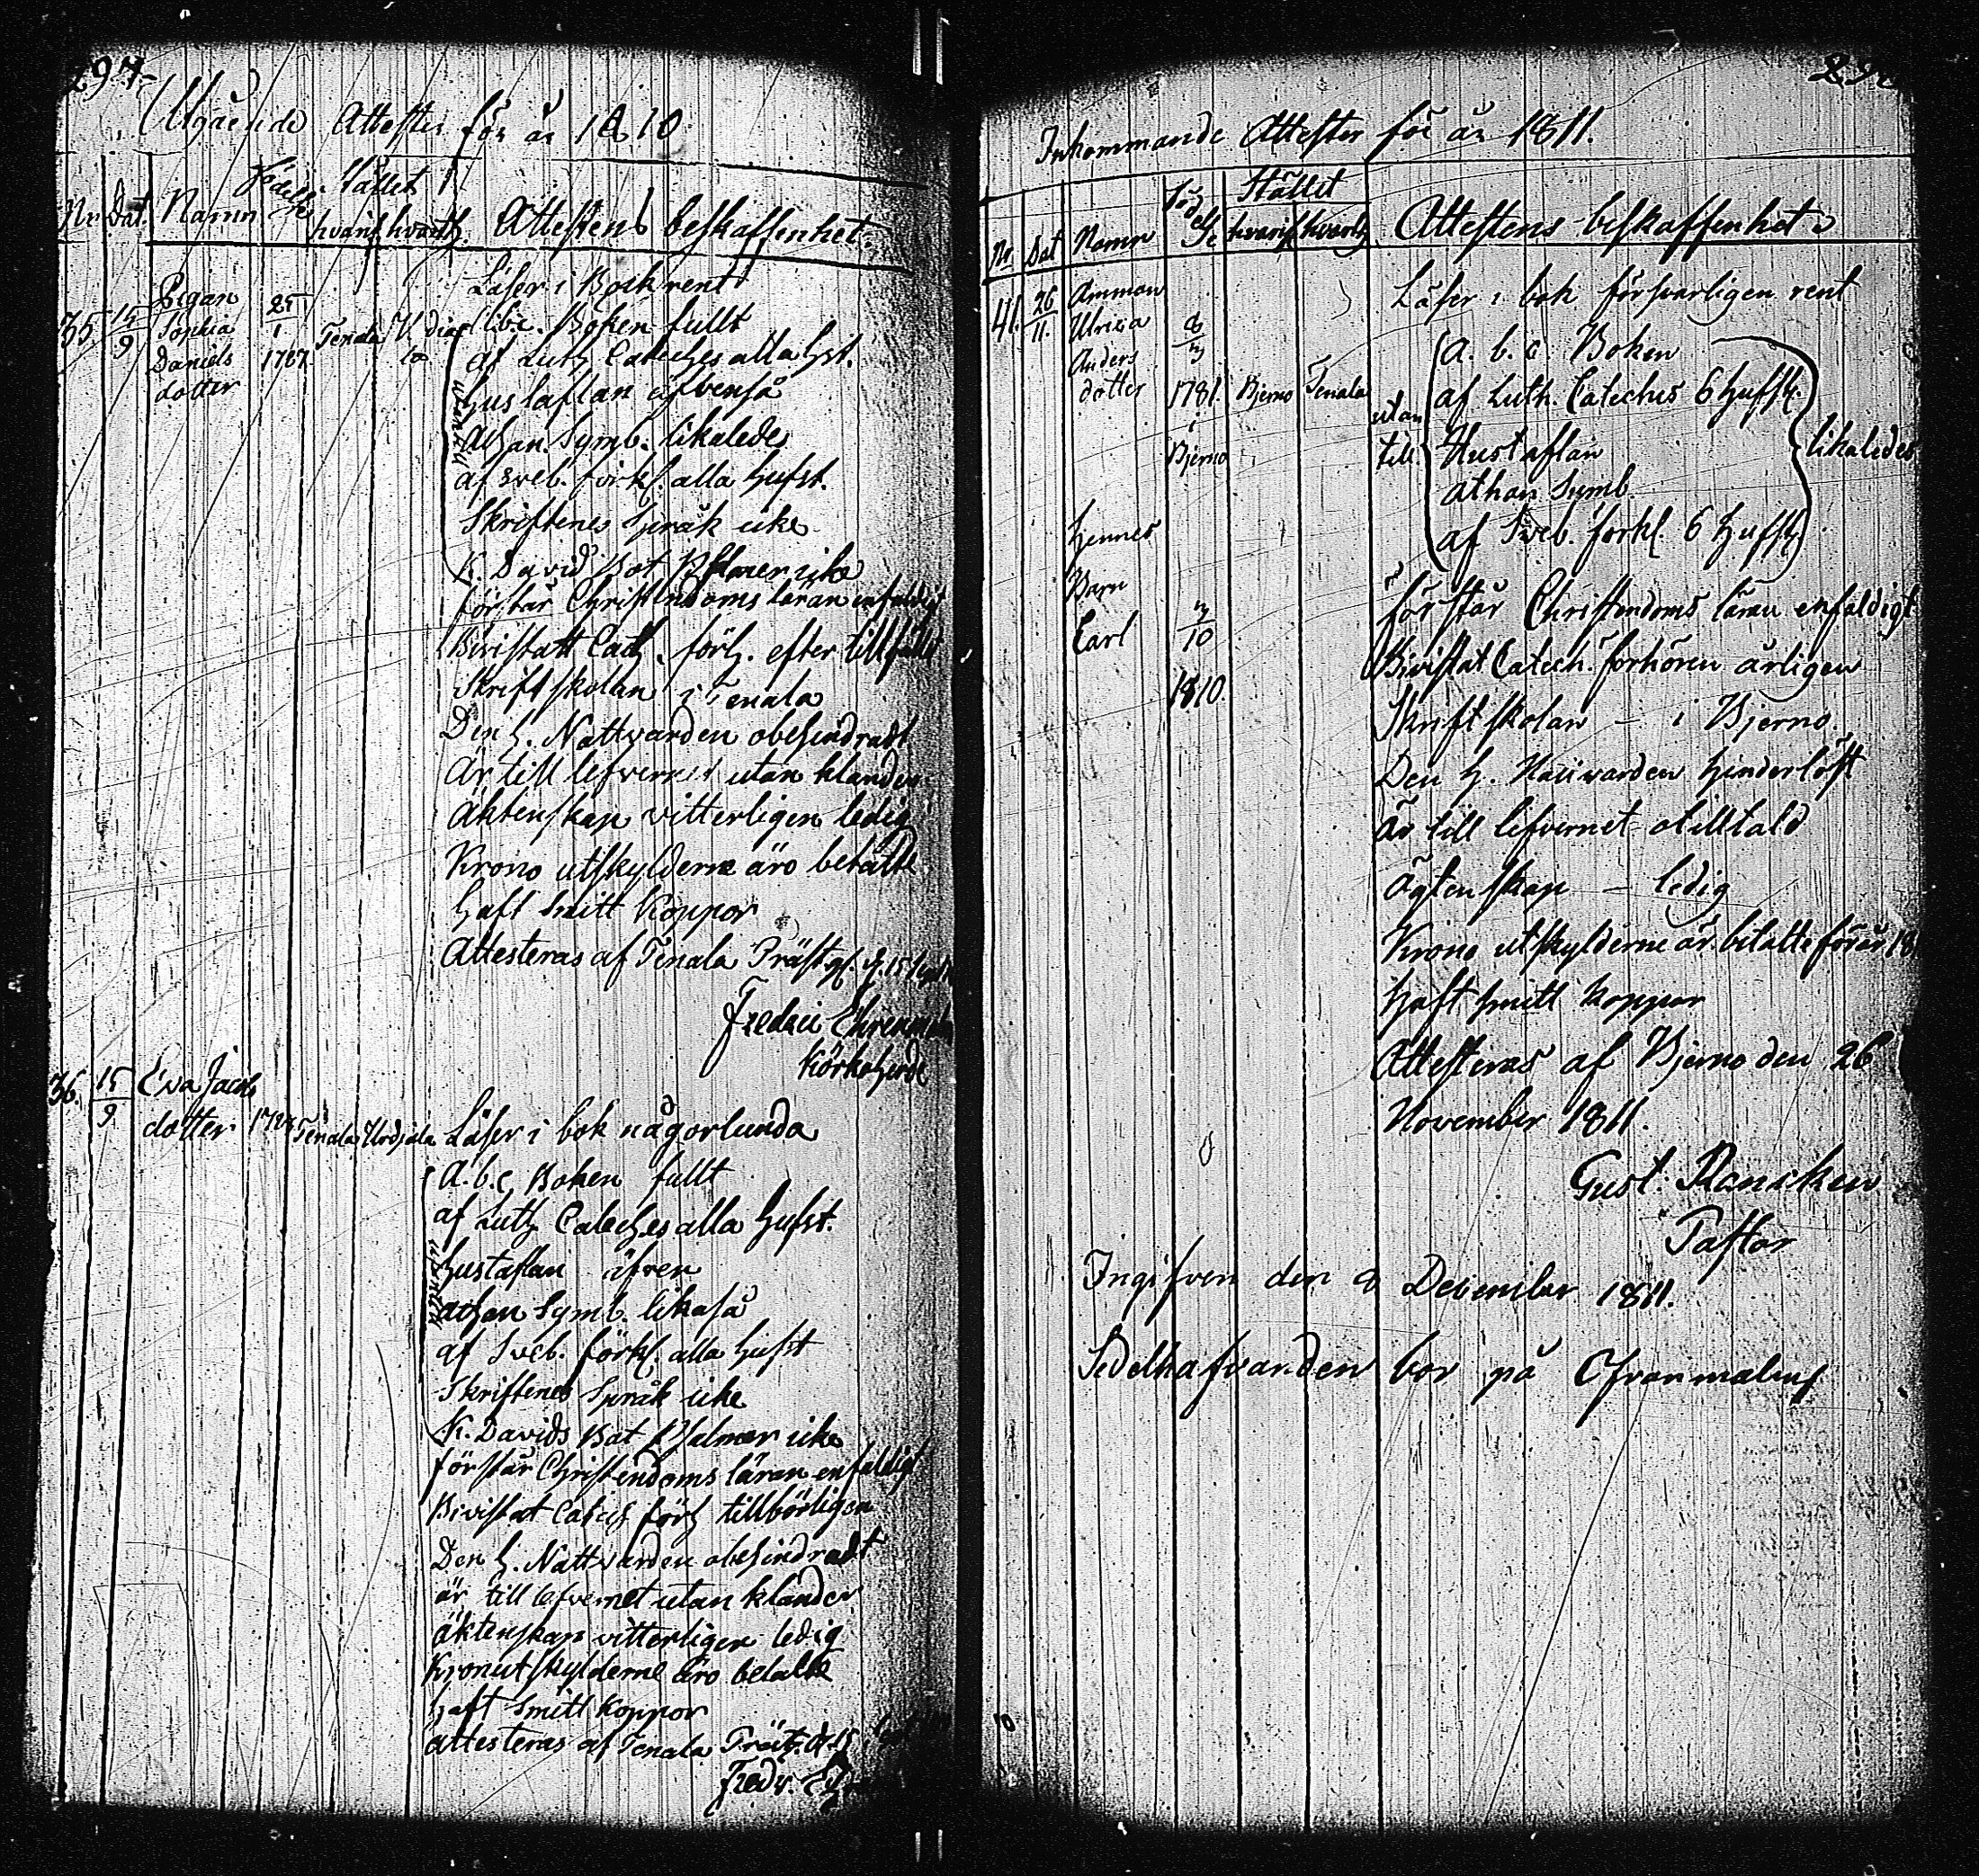 297.
Utgående Attester för år 1810
Nr Dat. Namn Födelse Stället
hvarifr hvarth. Attestens beskaffenhet.
35. 15/9 Pigan Sophia Daniels dotter 25/1 1787. Tenala Urdiala
Läser i Bok rent
abc. Boken fullt
af Luth. Cateches alla Hst.
Hustaflan äfvenså
Athan. Symb. likaledes
af Sveb. förkl. alla Hufst.
Skriftenes Språk icke
K. David Bot Psalmer icke
förstår Christendoms läran enfaldigt
Bivistatt Cath. förh. efter tillfälle
Skriftskolan i Tenala
Den H. Nattvarden obehindradt
Är till lefvernet utan klander
Äktenskap vitterligen ledig
Krono utskylderne äro betalte
Haft Smitt Koppor
Attesteras af Tenala Prästg. d. 15 Sept
Fredric
Körkoherde
36. 15/9 Eva Jacobs dotter Tenala Urdjala
Läser i bok någorlunda
A.b.c Boken fullt
af Luth Cateches alla Hufst.
Hustaflan äfven
Athan Symb. likaså
af Sveb. förkl. alla Hufst
Skriftenes Språk icke
K. Davids Bot Psalmer icke
förstår Christendoms läran enfaldigt
Bivistat Catech förh tillbörligen
Den H. Nattvarden obehindradt
är till lefvernet utan klander
äktenskap vitterligen ledig
Kronutskylderne äro betalte
Haft Smitt Koppor
attesteras af Tenala Prästg. d. 15
Fredr.
Inkommande Attester för år 1811.
Nr. Dat Namn Föd Stället
hvarifr hvarth Attestens beskaffenhet
41. 26/11. Amman Ulrica Anders dotter 8/3 1781. i Bjerno Bjerno Tenala
Hennes
Barn
Carl 3/10 1810.
Läser i bok försvarligen rent
utan till
A. b. c. Boken
af Luth. Cateches 6 Hufst.
Hustaflan
Athan Symb.
af Sveb. förkl. 6 Hufst
likaledes
förstår Christendoms läran enfaldigt
Bivistat Catech. förhören årligen
Skriftskolan – i Bjerno.
Den H. Nattvarden hinderlöst
Är till lefvernet otilltald
Ägtenskap – ledig
Krono utskylderne är betalte för år 18
Haft Smitt Koppor
Attesteras af Bjerno den 26
November 1811.
Gust. Rancken
Pastor
Ingifven den 9 December 1811.
Sedelhafvanden bor på